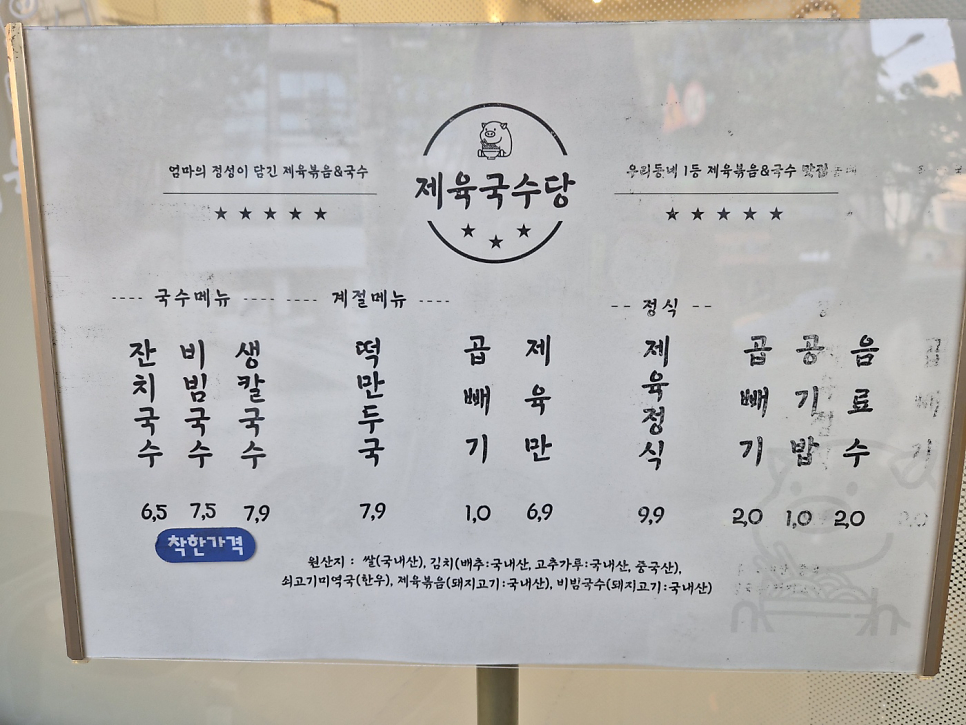 엄마의 정성이 담긴 제육볶음&국수
제육국수당
우리동네 1등 제육볶음&국수 맛집
국수메뉴
잔치국수 6,5
비빔국수 7,5
생칼국수 7,9
착한가격
계절메뉴
떡만두국 7,9
곱빼기 1,0
제육만 6,9
정식
제육정식 9,9
곱빼기 2,0
공기밥 1,0
음료수 2,0
원산지 : 쌀(국내산), 김치(배추:국내산, 고추가루:국내산, 중국산),
쇠고기미역국(한우), 제육볶음(돼지고기:국내산), 비빔국수(돼지고기:국내산)